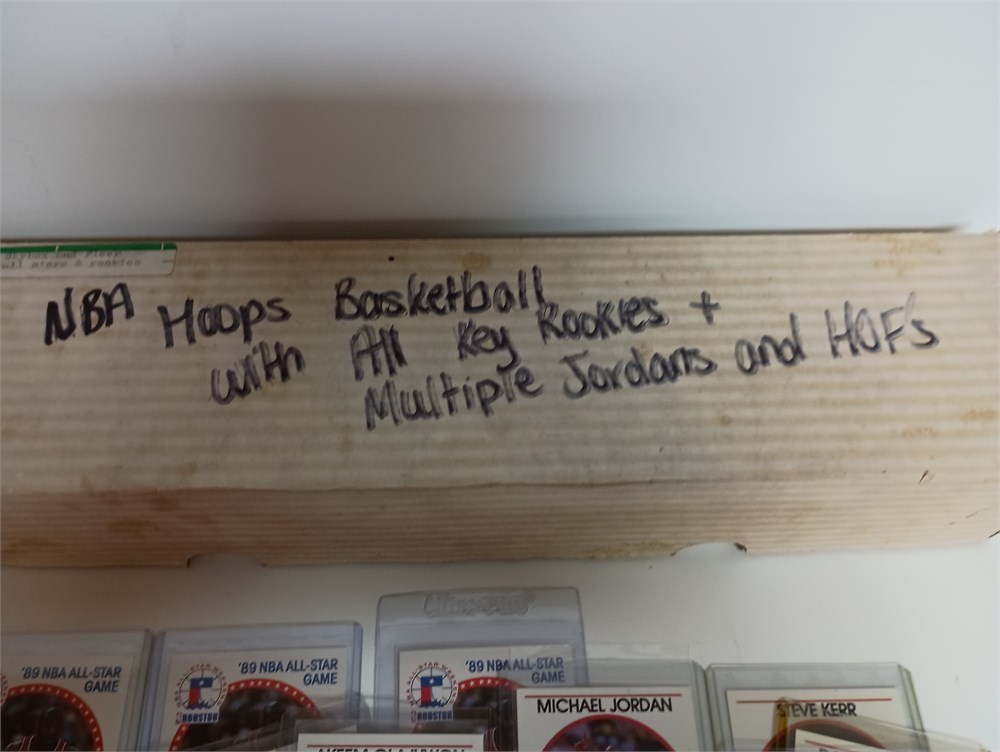 all stars & rookies
NBA Hoops Basketball
with All Key Rookies +
Multiple Jordans and HOF's
'89 NBA ALL-STAR
GAME
'89 NBA ALL-STAR
GAME
HOUSTON
'89 NBA ALL-STAR
GAME
HOUSTON
MICHAEL JORDAN
STEVE KERR
AKEEM OLAJUWON